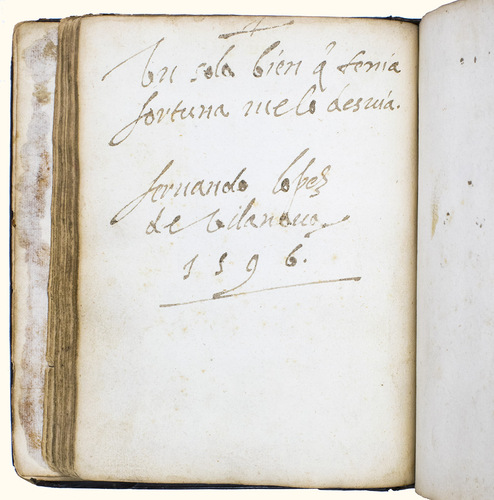 Un solo bien q̃ tenia
fortuna me lo desuia.
fernando lopes
de Vilanoua
1596.